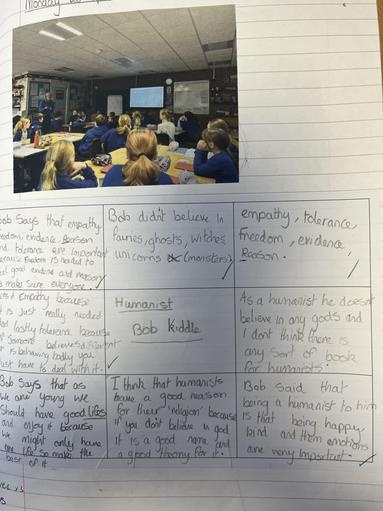 Monday
Bob Says that empathy
freedom, evidence, Reason
and tolerance are important
because Freedom is needed to
feel good evidence and reason
to make sure everyone
Bob didn't believe in
fairies, ghosts, witches
unicorns (monsters)
empathy, tolerance,
Freedom, evidence,
Reason.
Empathy because
it is just really needed
and lastly tolerance because
if someone believes different
or is behaving badly you
just have to deal with it.
Humanist
Bob Kiddle
As a humanist he doesnt
believe in any gods and
I dont think there is
any sort of book
for humanists.
Bob Says that as
we are young we
Should have good lifes
and enjoy it because
we might only have
one life so make the
best of it
I think that humanists
have a good reason
for their 'religion' because
if you don't believe in god
it is a good name and
a good theory for it.
Bob said that
being a humanist to him
is that being happy,
kind and them emotions
are very important.